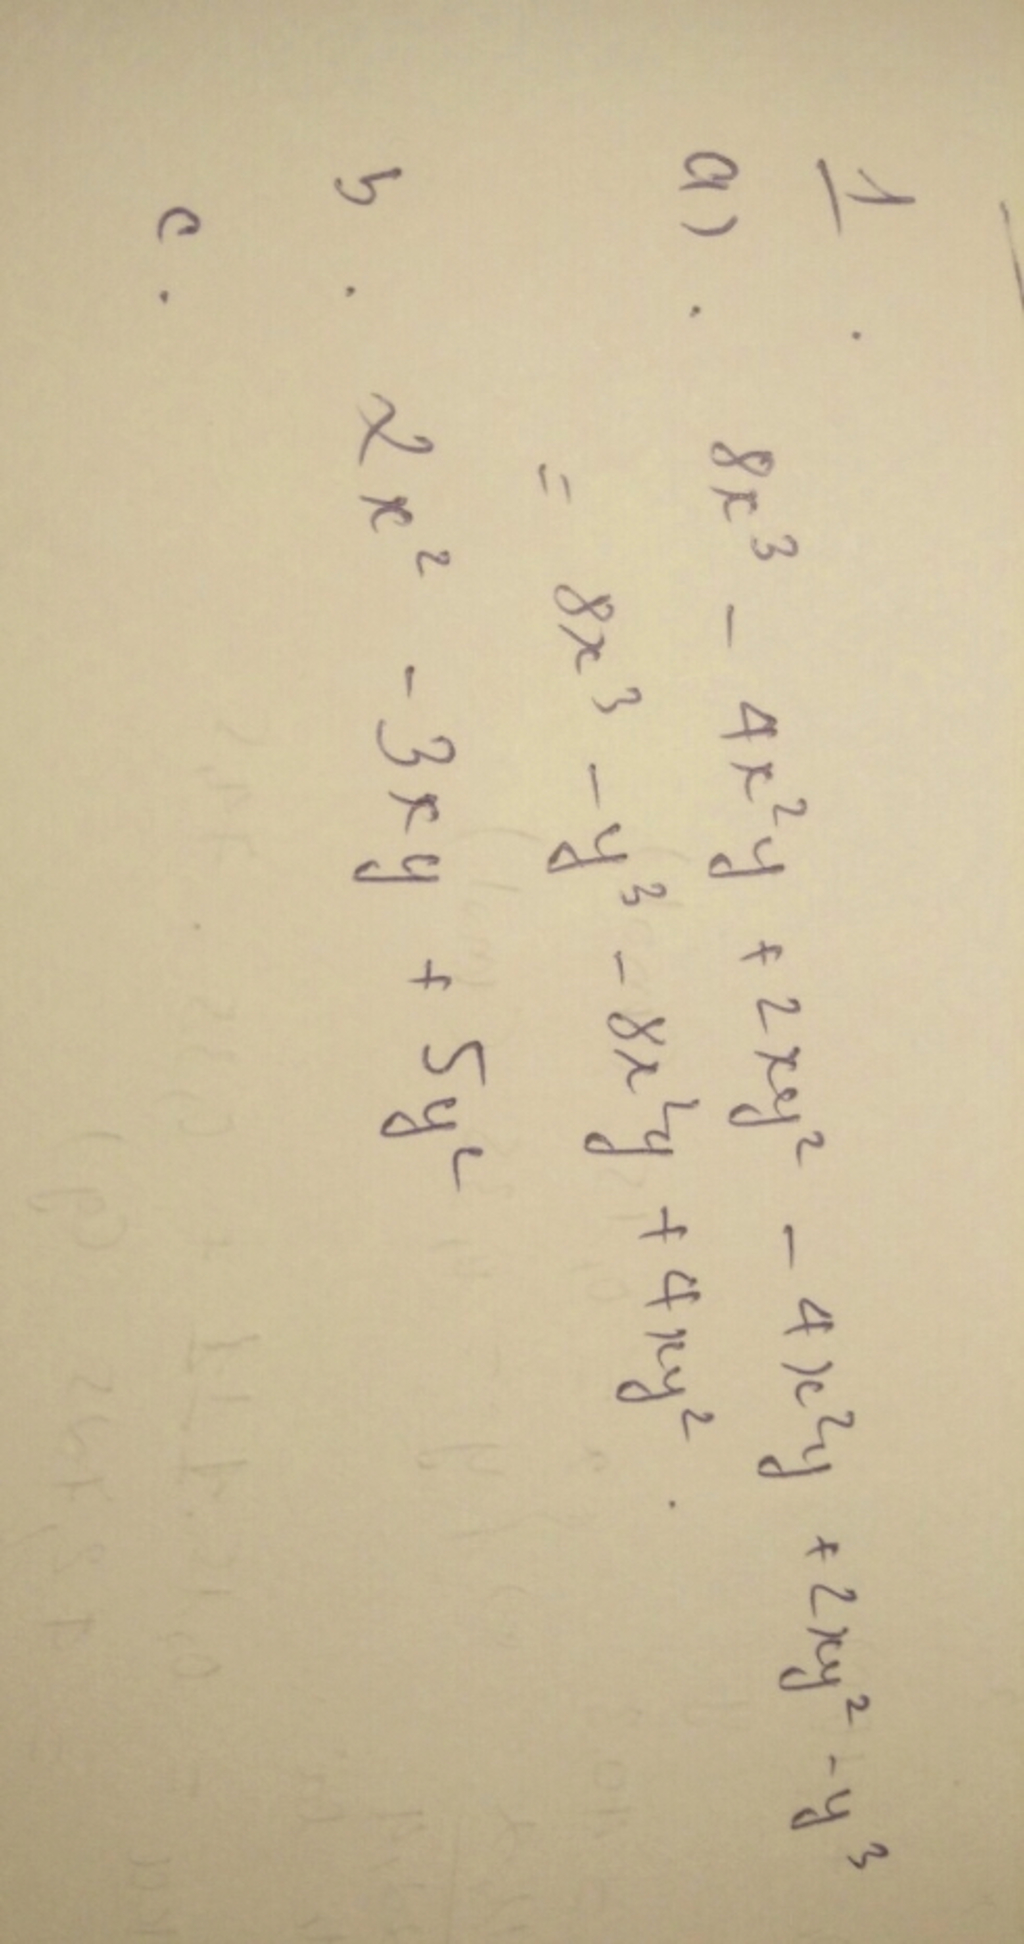 1.
a). 8x³ - 4x²y + 2xy² - 4x²y + 2xy² - y³
= 8x³ - y³ - 8x²y + 4xy².
b. 2x² - 3xy + 5y²
c.